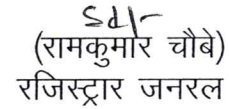 Sd/-
(रामकुमार चौबे)
रजिस्ट्रार जनरल